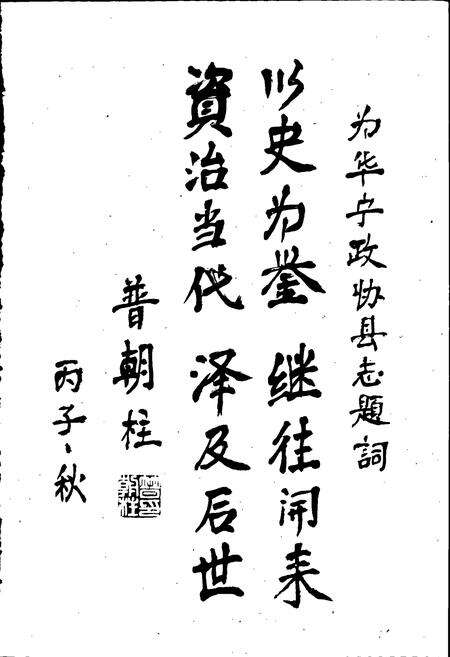 为华宁政协县志題詞
以史为鉴 继往开来
資治当代 泽及后世
普朝柱
丙子、秋